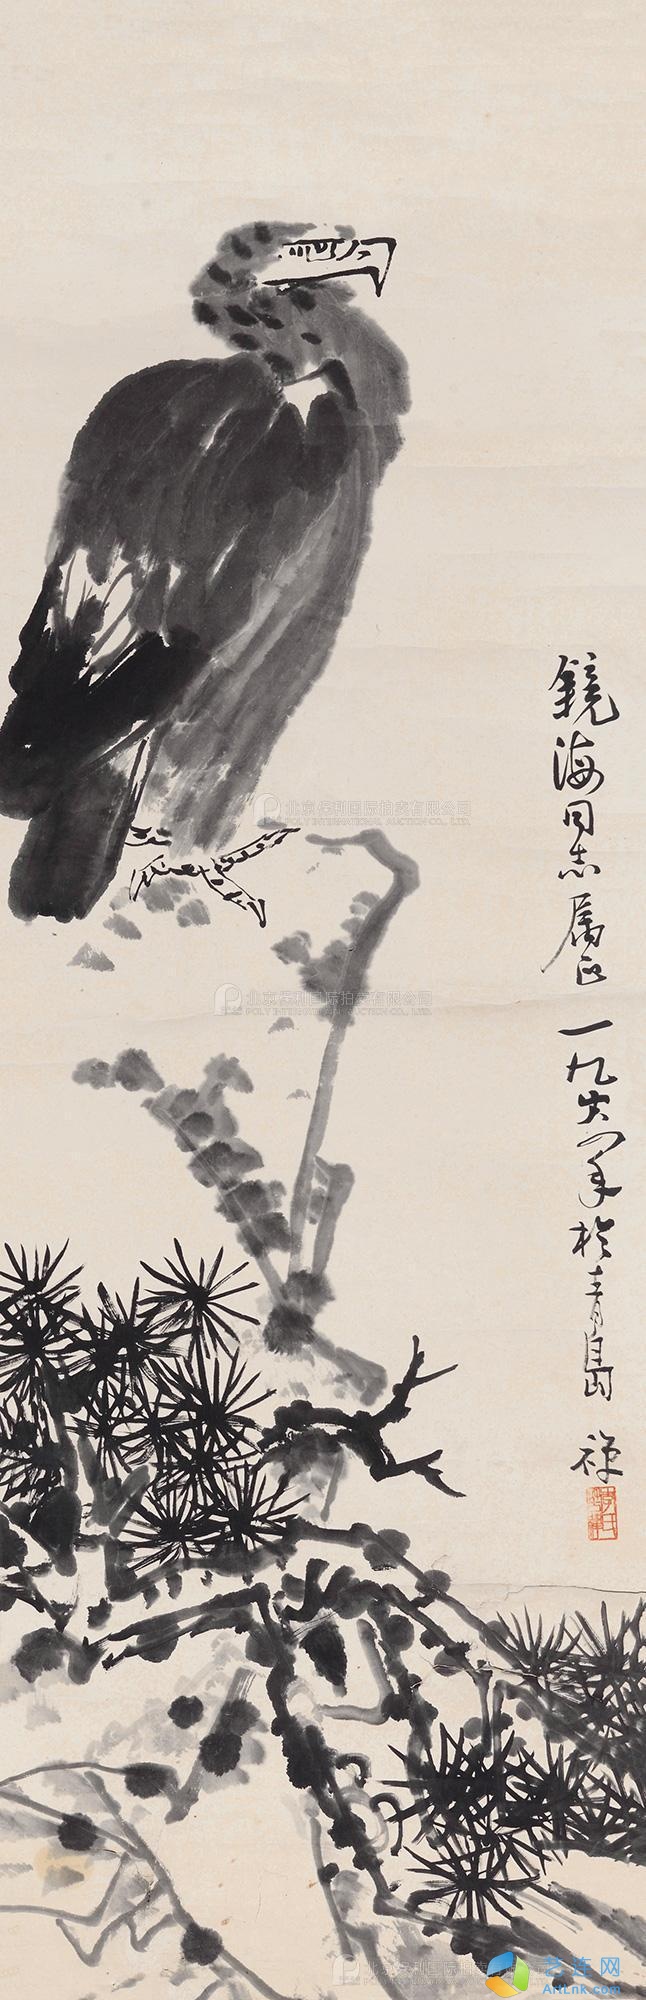 鏡海同志属正一九六一年於青島
禪
北京保利国际拍卖有限公司
POLY INTERNATIONAL AUCTION CO., LTD.
北京保利国际拍卖有限公司
POLY INTERNATIONAL AUCTION CO., LTD.
北京保利国际拍卖有限公司
POLY INTERNATIONAL AUCTION CO., LTD.
艺连网
ArtLnk.com